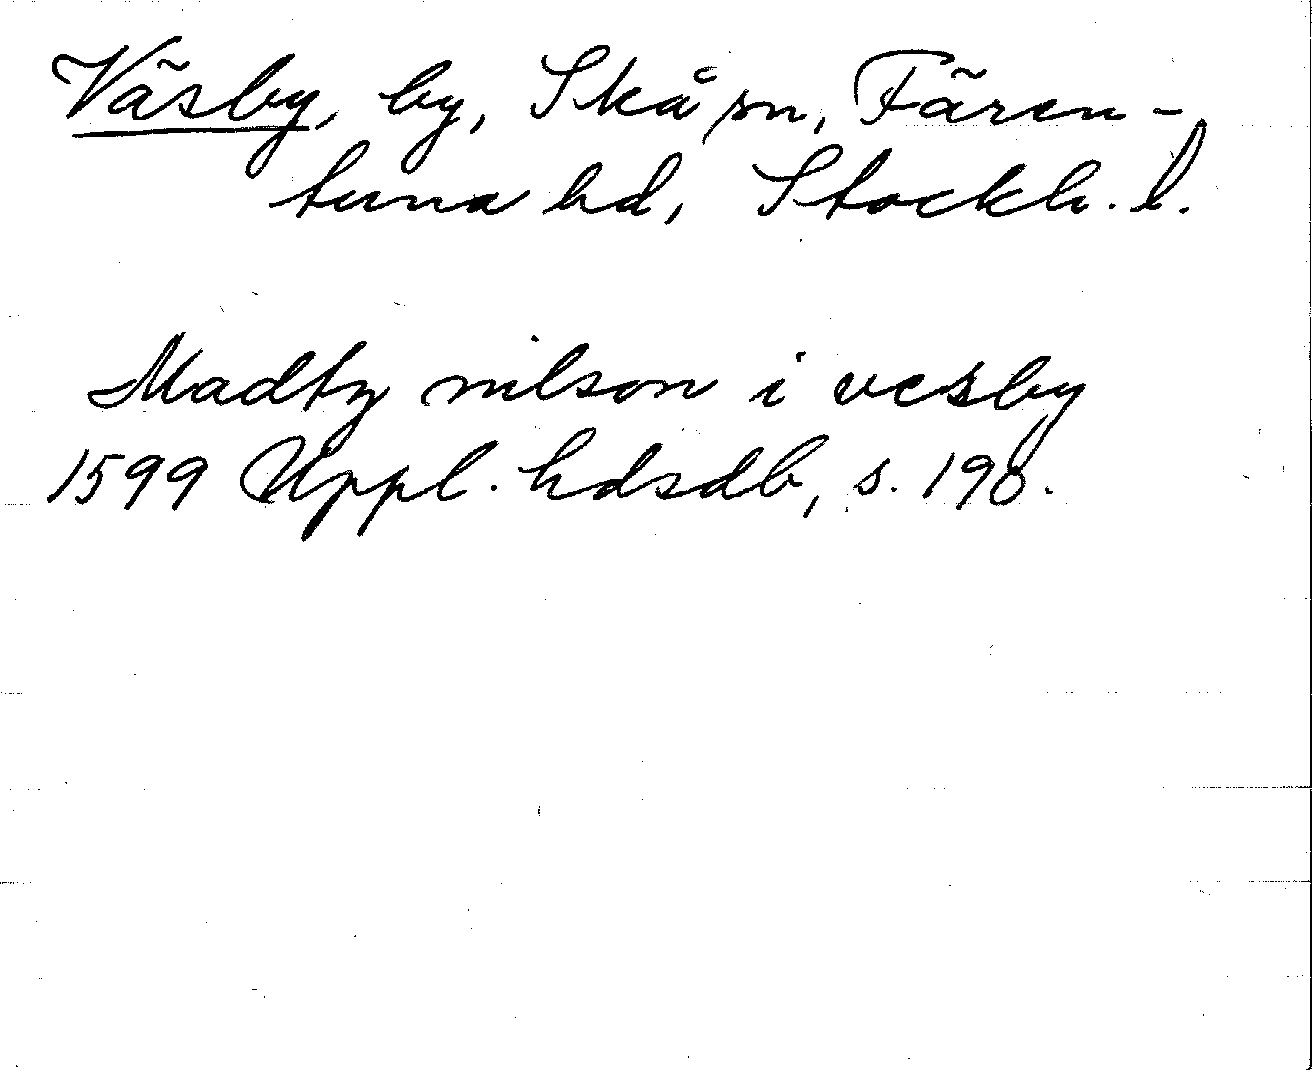 Väsby, by, Skå sn, Fären-
tuna hd, Stockh. l.
Madtz nilson i vesby
1599 Uppl. hdsdb, s. 198.